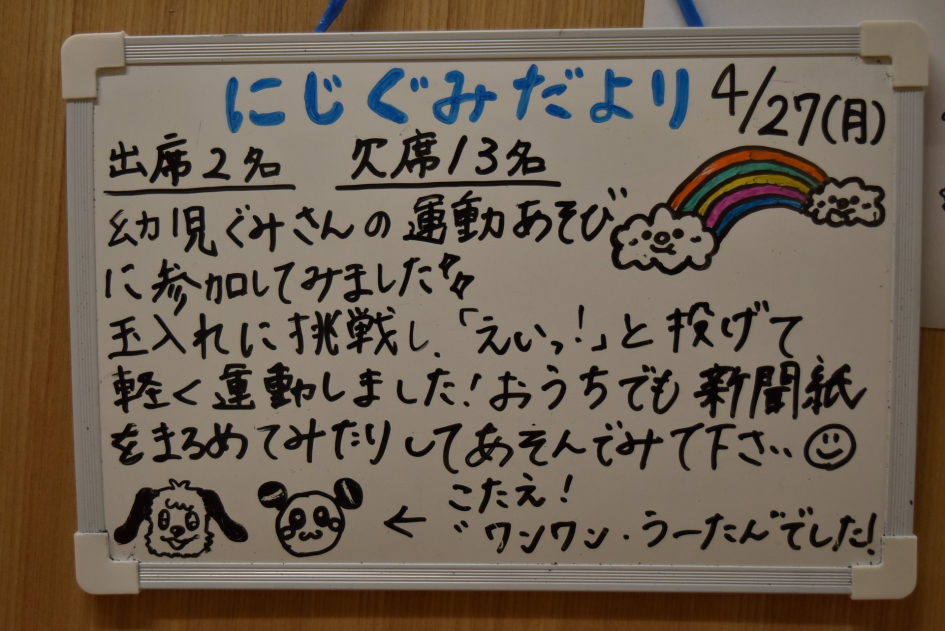 にじぐみだより 4/27(月)
出席2名 欠席13名
幼児ぐみさんの運動あそび
に参加してみました
玉入れに挑戦し、「えいっ!」と投げて
軽く運動しました!おうちでも新聞紙
をまるめてみたりしてあそんでみて下さい
こたえ!
← ワンワン・うーたんでした!